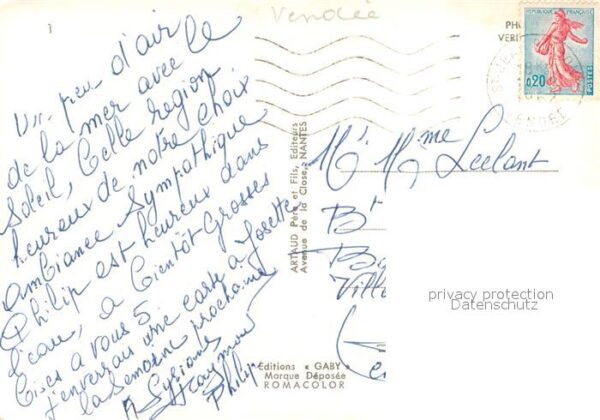 Vendée
1
Un peu d'air
de la mer avec le
Soleil, belle region
heureux de notre choix
ambiance Sympathique
Philip est heureux dans
l'eau, a bientôt Grosses
Bises a vous 5
j'enverrais une carte a Josette
la Semaine prochaine
Raymond
Philip
ARTAUD Père et Fils, Editeurs
Avenue de la Close, NANTES
Editions « GABY »
Marque Déposée
ROMACOLOR
REPUBLIQUE FRANÇAISE
0,20
POSTES
VENDEE
M. Mme Leclant
Bt
privacy protection
Datenschutz